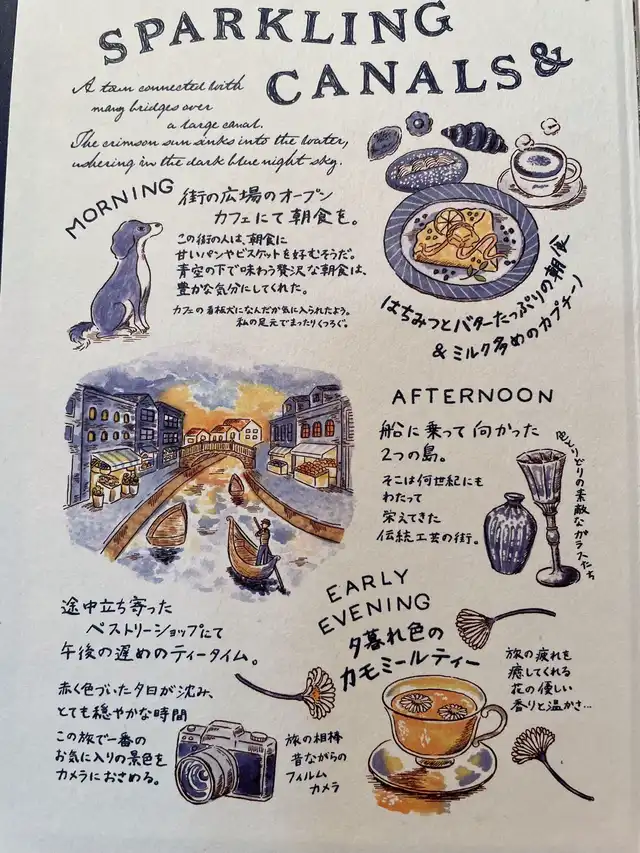 SPARKLING
CANALS &
A town connected with
many bridges over
a large canal.
The crimson sun sinks into the water,
ushering in the dark blue night sky.
MORNING
街の広場のオープン
カフェにて朝食を。
この街の人は、朝食に
甘いパンやビスケットを好むそうだ。
青空の下で味わう贅沢な朝食は、
豊かな気分にしてくれた。
カフェの看板犬になんだか気に入られたよう。
私の足元でまったりくつろぐ。
はちみつとバターたっぷりの朝食
&ミルク多めのカプチーノ
AFTERNOON
船に乗って向かった
2つの島。
そこは何世紀にも
わたって
栄えてきた
伝統工芸の街。
色とりどりの素敵なガラスたち
途中立ち寄った
ペストリーショップにて
午後の遅めのティータイム。
赤く色づいた夕日が沈み、
とても穏やかな時間
この旅で一番の
お気に入りの景色を
カメラにおさめる。
旅の相棒
昔ながらの
フィルム
カメラ
EARLY
EVENING
夕暮れ色の
カモミールティー
旅の疲れを
癒してくれる
花の優しい
香りと温かさ…